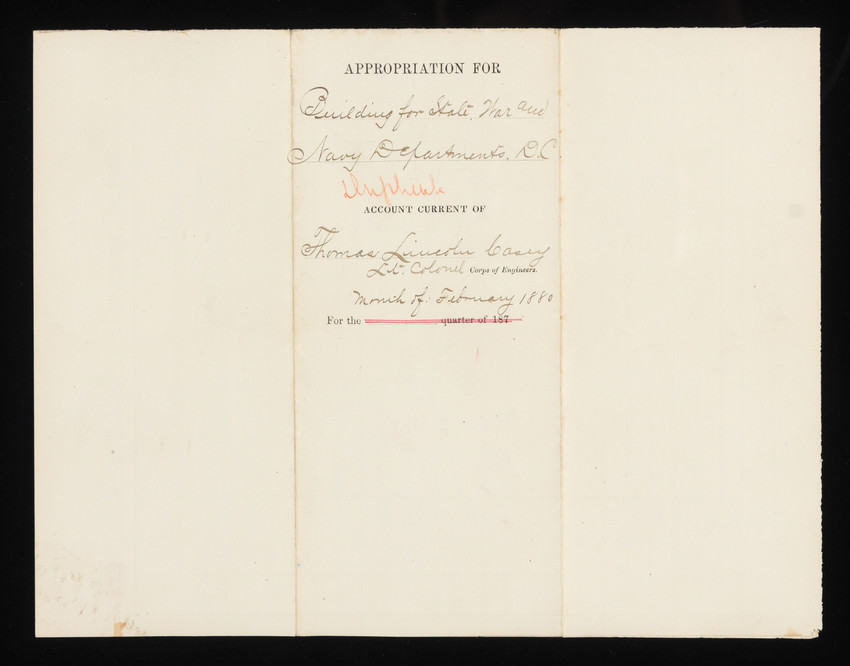 APPROPRIATION FOR
Building for State, War and
Navy Departments, D.C.
Duplicate
ACCOUNT CURRENT OF
Thomas Lincoln Casey
Lt. Colonel Corps of Engineers.
Month of February 1880
For the quarter of 187